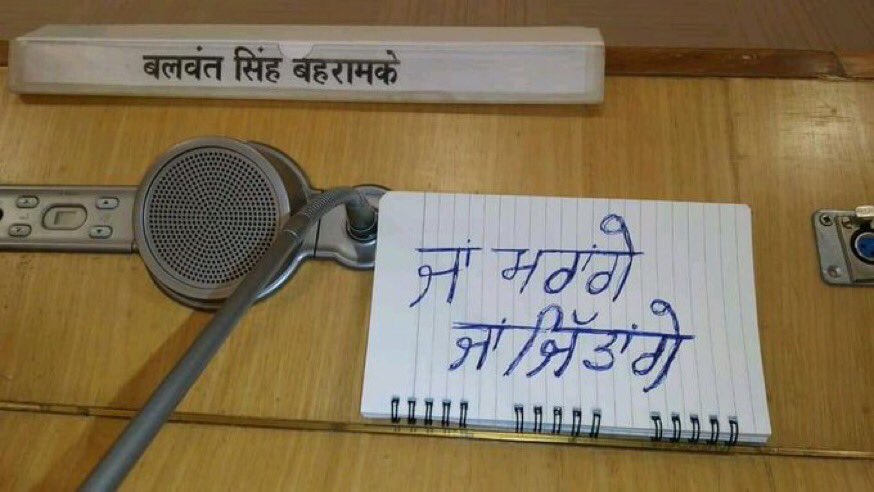 बलवंत सिंह बहरामके
ਜਾਂ ਮਰਾਂਗੇ
ਜਾਂ ਜਿੱਤਾਂਗੇ